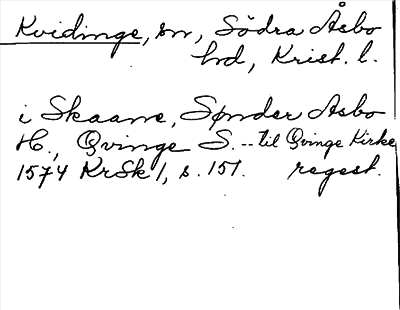 Kvidinge, sn, Södra Åsbo
hd, Krist. l.
i Skaane, Sønder Asbo
H., Qvinge S. -- til Qvinge Kirke
1574 KrSk 1, s. 151. regest.